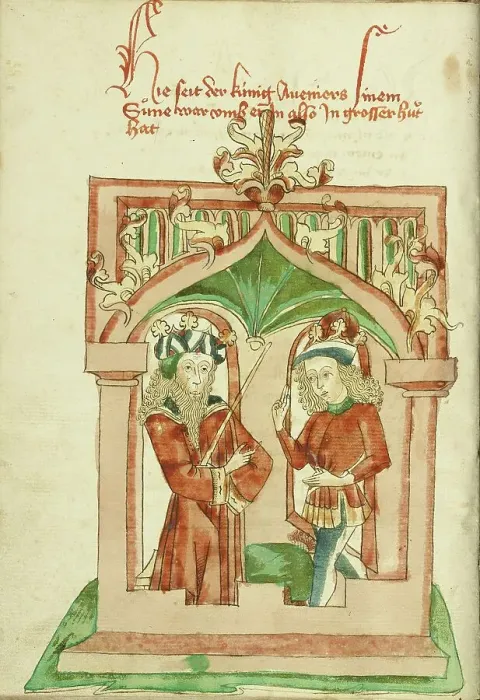 Hie seit der künig Aueniers sinem
Sune warvmb er in also In grosser hůt
hat